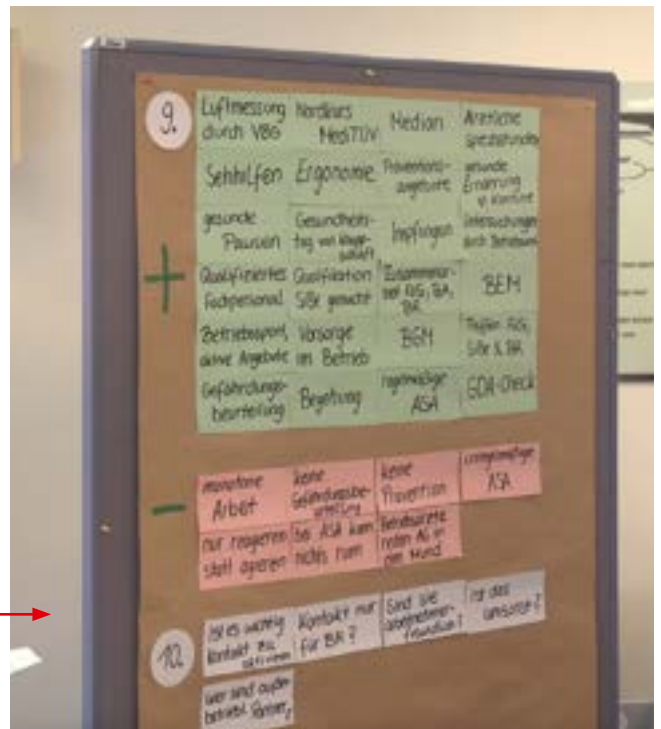 9.
Luftmessung
durch VBG
Nordkurs
MediTÜV
Median
Ärztliche
Spezialstunden
Sehhilfen
Ergonomie
Präventions-
angebote
gesunde
Ernährung
gesunde
Pausen
Gesundheits-
tag von
Impfungen
Untersuchungen
durch
+
Qualifiziertes
Fachpersonal
Qualifikation
SiBe gemacht
BEM
Betriebssport,
aktive Angebote
Vorsorge
im Betrieb
BGM
Gefährdungs-
beurteilung
Begehung
regelmäßige
ASA
GDA-Check
-
monotone
Arbeit
keine
Gefährdungsbe-
urteilung
keine
Prävention
unregelmäßige
ASA
nur reagieren
statt agieren
bei ASA kam
nichts rum
Betriebsräte
reden AG in
den Mund
10.
Ist es wichtig
Kontakt zu
Kontakt nur
für BR?
Sind sie
arbeitnehmer-
freundlich?
Ist das
umsonst?
Wer sind außer-
betriebl. Partner?